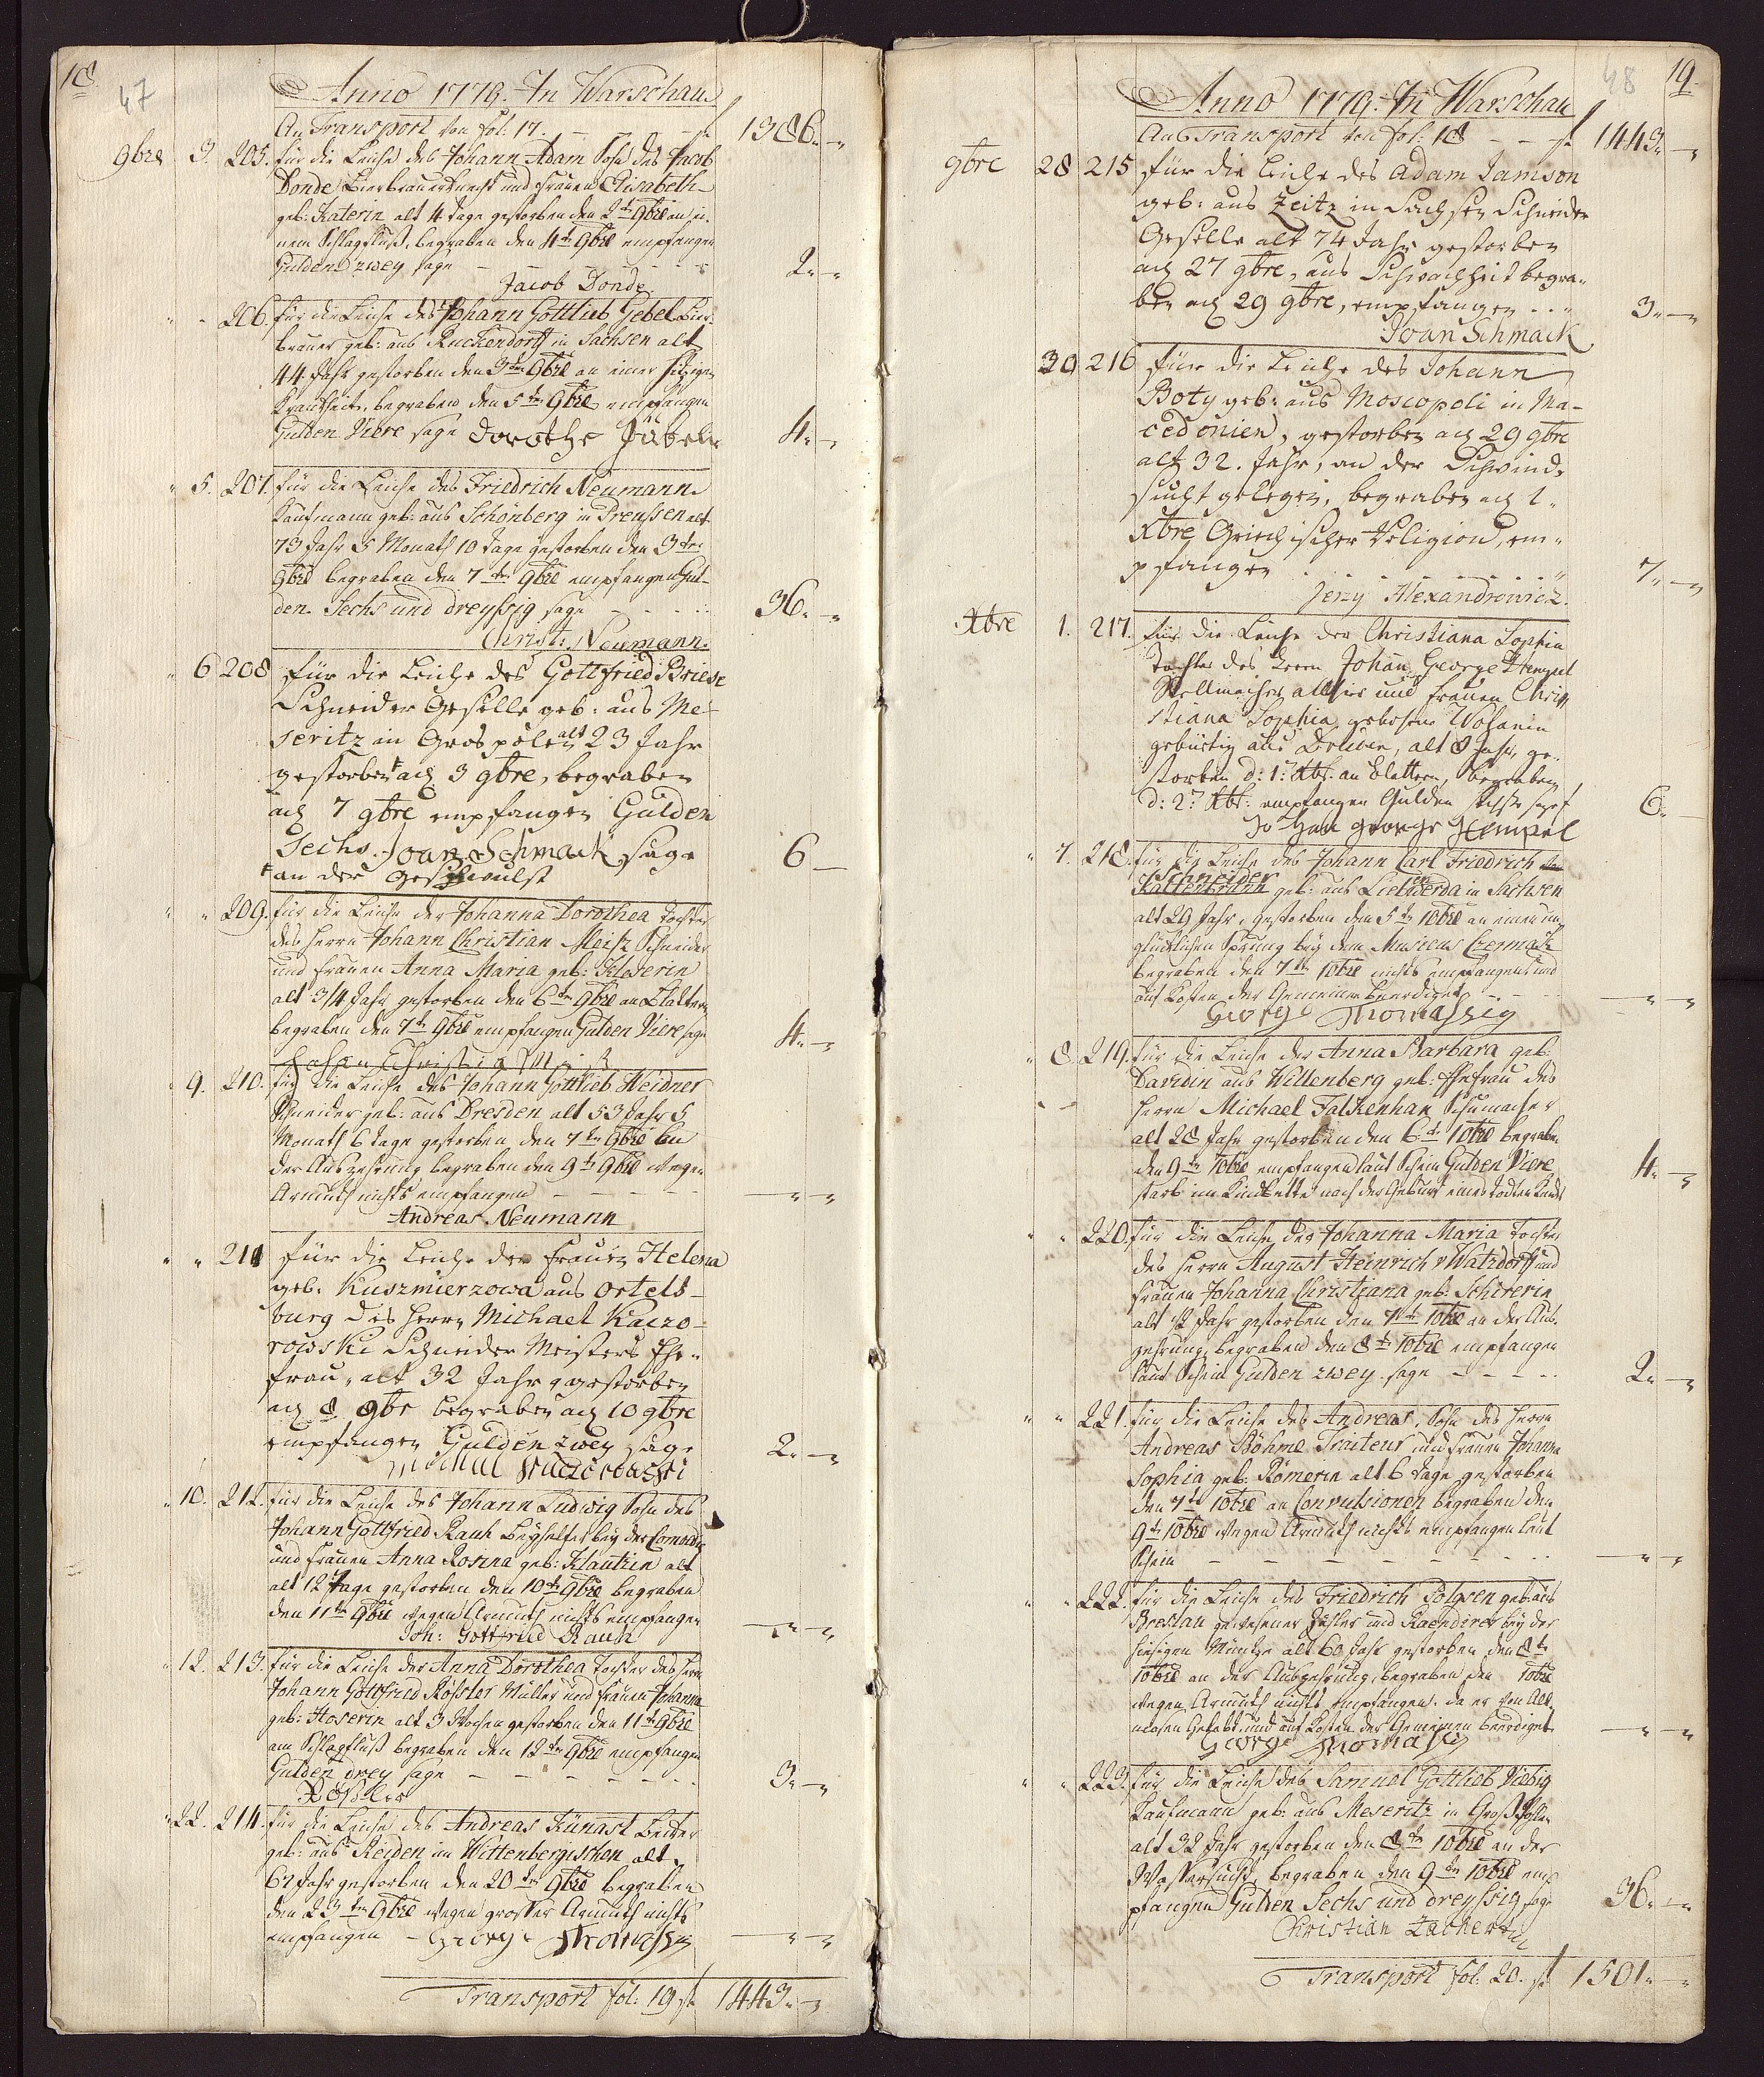 18.
47
Anno 1779. In Warschau
An Transport von fol: 17. f 1386.
9bre 3. 205. für die Leiche des Johann Adam Sohn des Jacob
Donde Bierbrauerknecht und Frauen Elisabeth
geb: Katerin alt 4 Tage gestorben den 2t 9bre an ei-
nem Schlagfluß, begraben den 4t 9bre empfangen
Gulden zwey sage 2.
Jacob Donde
206. für die Leiche des Johann Gottlieb Gebel Bier-
brauer geb: aus Ruckendorff in Sachsen alt
44 Jahr gestorben den 3ten 9bre an einer hitzigen
Kranckheit, begraben den 5ten 9bre empfangen
Gulden Viere sage Dorothe 4.
5. 207. für die Leiche des Friedrich Neumann
Kaufmann geb: aus Schönberg in Preussen alt
73 Jahr 5 Monath 10 Tage gestorben den 3ten
9bre begraben den 7ten 9bre empfangen Gul-
den Sechs und dreyssig sage 36.
Christ: Neumann.
6 208 für die Leiche des Gottfried Briese
Schneider Geselle geb: aus Me-
seritz in Grospolen alt 23 Jahr
gestorben + am 3 9bre, begraben
am 7 9bre empfangen Gulden
Sechs. Joan Schmack sage 6
+ an der Geschwulst
209. für die Leiche der Johanna Dorothea Tochter
des Herrn Johann Christian Meisz Schneider
und Frauen Anna Maria geb: Kloserin
alt 3/4 Jahr gestorben den 6ten 9bre an Blattern
begraben den 7t 9bre empfangen Gulden Viere sage 4.
Johan Christian
9. 210. für die Leiche des Johann Gottlieb Weidner
Schneider geb: aus Dresden alt 53 Jahr 5
Monath 6 Tage gestorben den 7ten 9bre an
der Auszehrung begraben den 9t 9bre wegen
Armuth nichts empfangen
Andreas Neumann
211 für die Leiche der Frauen Helena
geb: Kuszmierzowa aus Ortels-
burg des Herrn Michael Kaczo-
rowski Schneider Meisters Ehe-
frau, alt 32 Jahr gestorben
am 8 9br begraben am 10 9bre
empfangen Gulden zwey sage 2.
Michal Kaczorowski
10. 212. für die Leiche des Johann Ludwig Sohn des
Johann Gottfried Rauh Beyhelfer bey der Comoedie
und Frauen Anna Rosina geb: Klautzin alt
alt 12 Tage gestorben den 10ten 9bre begraben
den 11ten 9bre wegen Armuth nichts empfangen
Joh: Gottfried Rauh
12. 213. für die Leiche der Anna Dorothea Tochter des Herrn
Johann Gottfried Rössler Müller und Frauen Johanna
geb: Hoserin alt 3 Wochen gestorben den 11t 9bre
am Schlagfluß begraben den 12ten 9bre empfangen
Gulden drey sage 3.
Rößler
22. 214. für die Leiche des Andreas Künast
geb: aus Reiden im Wittenbergischen alt
62 Jahr gestorben den 20ten 9bre begraben
den 23ten 9bre wegen grosser Armuth nichts
empfangen George Thomaszig
Transport fol: 19 f 1443.
48
19.
Anno 1779. In Warschau
An Transport von fol: 18 f 1443.
9bre 28 215 für die Leiche des Adam Lamson
geb: aus Zeitz in Sachsen Schneider
Geselle alt 74 Jahr gestorben
am 27 9bre, aus Schwachheit begra-
ben am 29 9bre, empfangen 3.
Joan Schmack
30 216 für die Leiche des Johann
Boty geb: aus Moscopoli in Ma-
cedonien, gestorben am 29 9bre
alt 32. Jahr, an der Schwind-
sucht gelegen, begraben am 1.
Xbre Griechischer Religion, em-
pfangen 7.
Jerzy Alexandrowicz.
Xbre 1. 217. für die Leiche der Christiana Sophia
Tochter des Herrn Johann George Hempel
Stellmacher allhier und Frauen Chri-
stiana Sophia gebohrne Wohanin
gebürtig aus, alt 8 Jahr, ge-
storben d: 1t Xbr: an Blattern, begraben
d: 2t Xbr: empfangen Gulden sechse sage 6.
Johan George Hempel
7. 218. für die Leiche des Johann Carl Friedrich
Schneider
Kaltenbrunn geb: aus Liebenwerda in Sachsen
alt 29 Jahr, gestorben den 5ten 10bre an einem un-
glücklichen Sprung bey dem Musicus Czermack
begraben den 7ten 10bre nichts empfangen und
auf Kosten der Gemeine beerdiget
George Thomaszig
8. 219. für die Leiche der Anna Barbara geb:
Davidin aus Willenberg geb: Ehefrau des
Herrn Michael Falckenhan Schumacher
alt 28 Jahr gestorben den 6t 10bre begraben
den 9ten 10bre empfangen laut Schein Gulden Viere 4.
starb im Kindbette nach der Geburt eines todten Kindes
220. für die Leiche der Johanna Maria Tochter
des Herrn August Heinrich Watzdorff und
Frauen Johanna Christiana geb: Schirerin
alt 1/2 Jahr gestorben den 7ten 10bre an der Aus-
zehrung, begraben den 8t 10bre empfangen
laut Schein Gulden zwey sage 2.
221. für die Leiche des Andreas, Sohn des Herrn
Andreas Böhme Traiteur und Frauen Johanna
Sophia geb: Römerin alt 6 Tage gestorben
den 7t 10bre an Convulsionen begraben den
9t 10bre wegen Armuth nichts empfangen laut
Schein
222. für die Leiche des Friedrich Polgsen geb: aus
Breslau gewesener und bey der
hiesigen Müntze alt 60 Jahr gestorben den 8ten
10bre an der Auszehrung, begraben den 10bre
wegen Armuth nichts empfangen, da er von All-
mosen gelebt, und auf Kosten der Gemeinen beerdiget
George Thomaszig
223. für die Leiche des Samuel Gottlieb Viebig
Kaufmann geb: aus Meseritz in Groß Pohlen
alt 32 Jahr gestorben den 8ten 10bre an der
Wassersucht, begraben den 9ten 10bre em-
pfangen Gulden Sechs und dreyssig sage 36.
Christian Zachert
Transport fol: 20. f 1501.